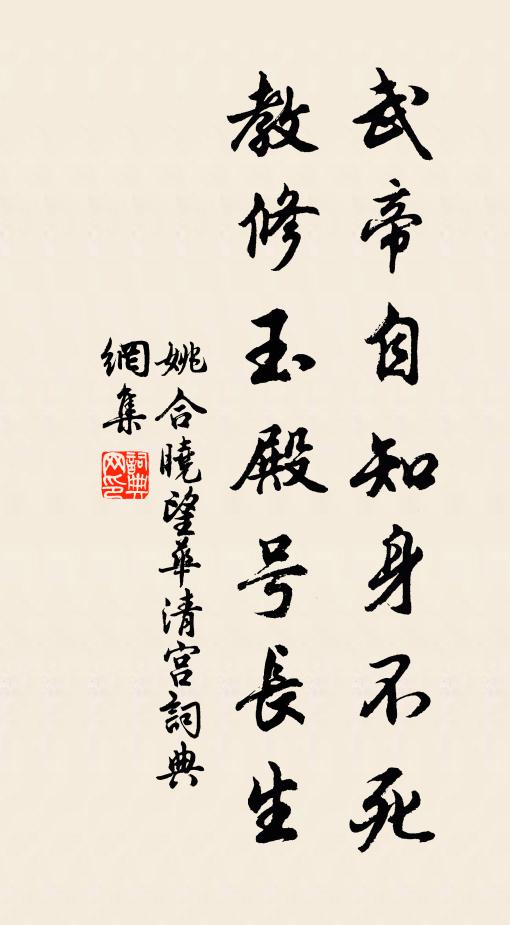 武帝自知身不死
教修玉殿号長生
姚合曉望華清宮詞典
網集
詞典网印